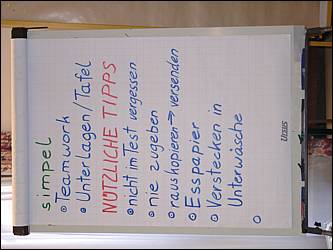 simpel
• Teamwork
• Unterlagen/Tafel
NÜTZLICHE TIPPS
• nicht im Test vergessen
• nie zugeben
• rauskopieren → versenden
• Esspapier
• Verstecken in
Unterwäsche
Ursus